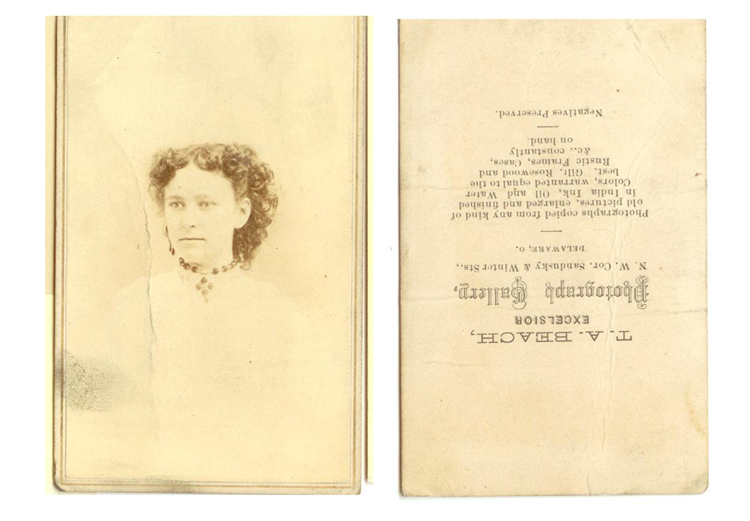 T. A. BEACH,
EXCELSIOR
Photograph Gallery,
N. W. Cor. Sandusky & Winter Sts.,
DELAWARE, O.
Photographs copied from any kind of
old pictures, enlarged and finished
in India Ink, Oil and Water
Colors, warranted equal to the
best. Gilt, Rosewood and
Rustic Frames, Cases,
&c., constantly
on hand.
Negatives Preserved.